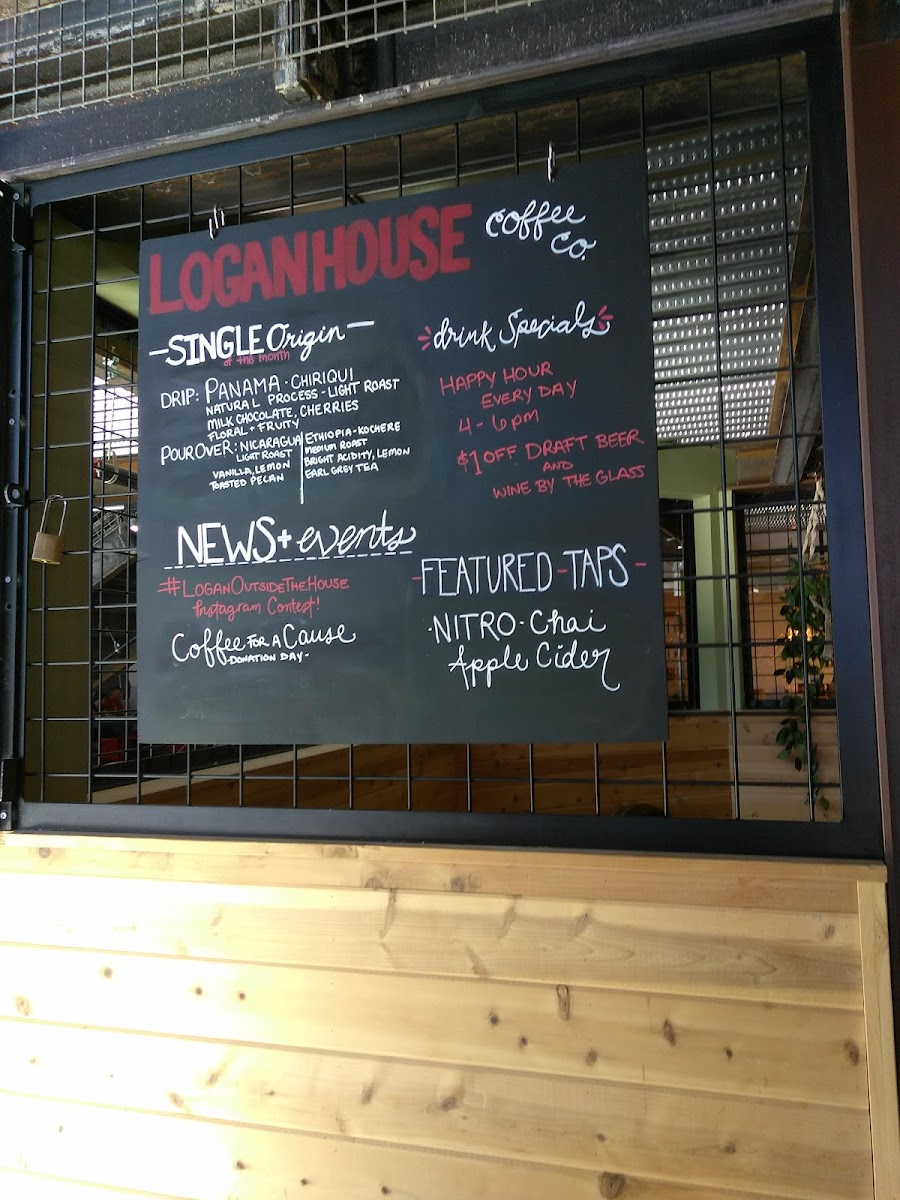 LOGAN HOUSE coffee co.
-SINGLE Origin-
of the month
DRIP: PANAMA · CHIRIQUI
NATURAL PROCESS - LIGHT ROAST
MILK CHOCOLATE, CHERRIES
FLORAL + FRUITY
POUROVER: NICARAGUA
LIGHT ROAST
VANILLA, LEMON
TOASTED PECAN
ETHIOPIA - KOCHERE
MEDIUM ROAST
BRIGHT ACIDITY, LEMON
EARL GREY TEA
NEWS + events
#LOGANOUTSIDETHEHOUSE
Instagram Contest!
Coffee FOR A Cause
-DONATION DAY-
drink Specials
HAPPY HOUR
EVERY DAY
4 - 6 pm
$1 OFF DRAFT BEER
AND
WINE BY THE GLASS
-FEATURED-TAPS-
·NITRO·Chai
Apple Cider